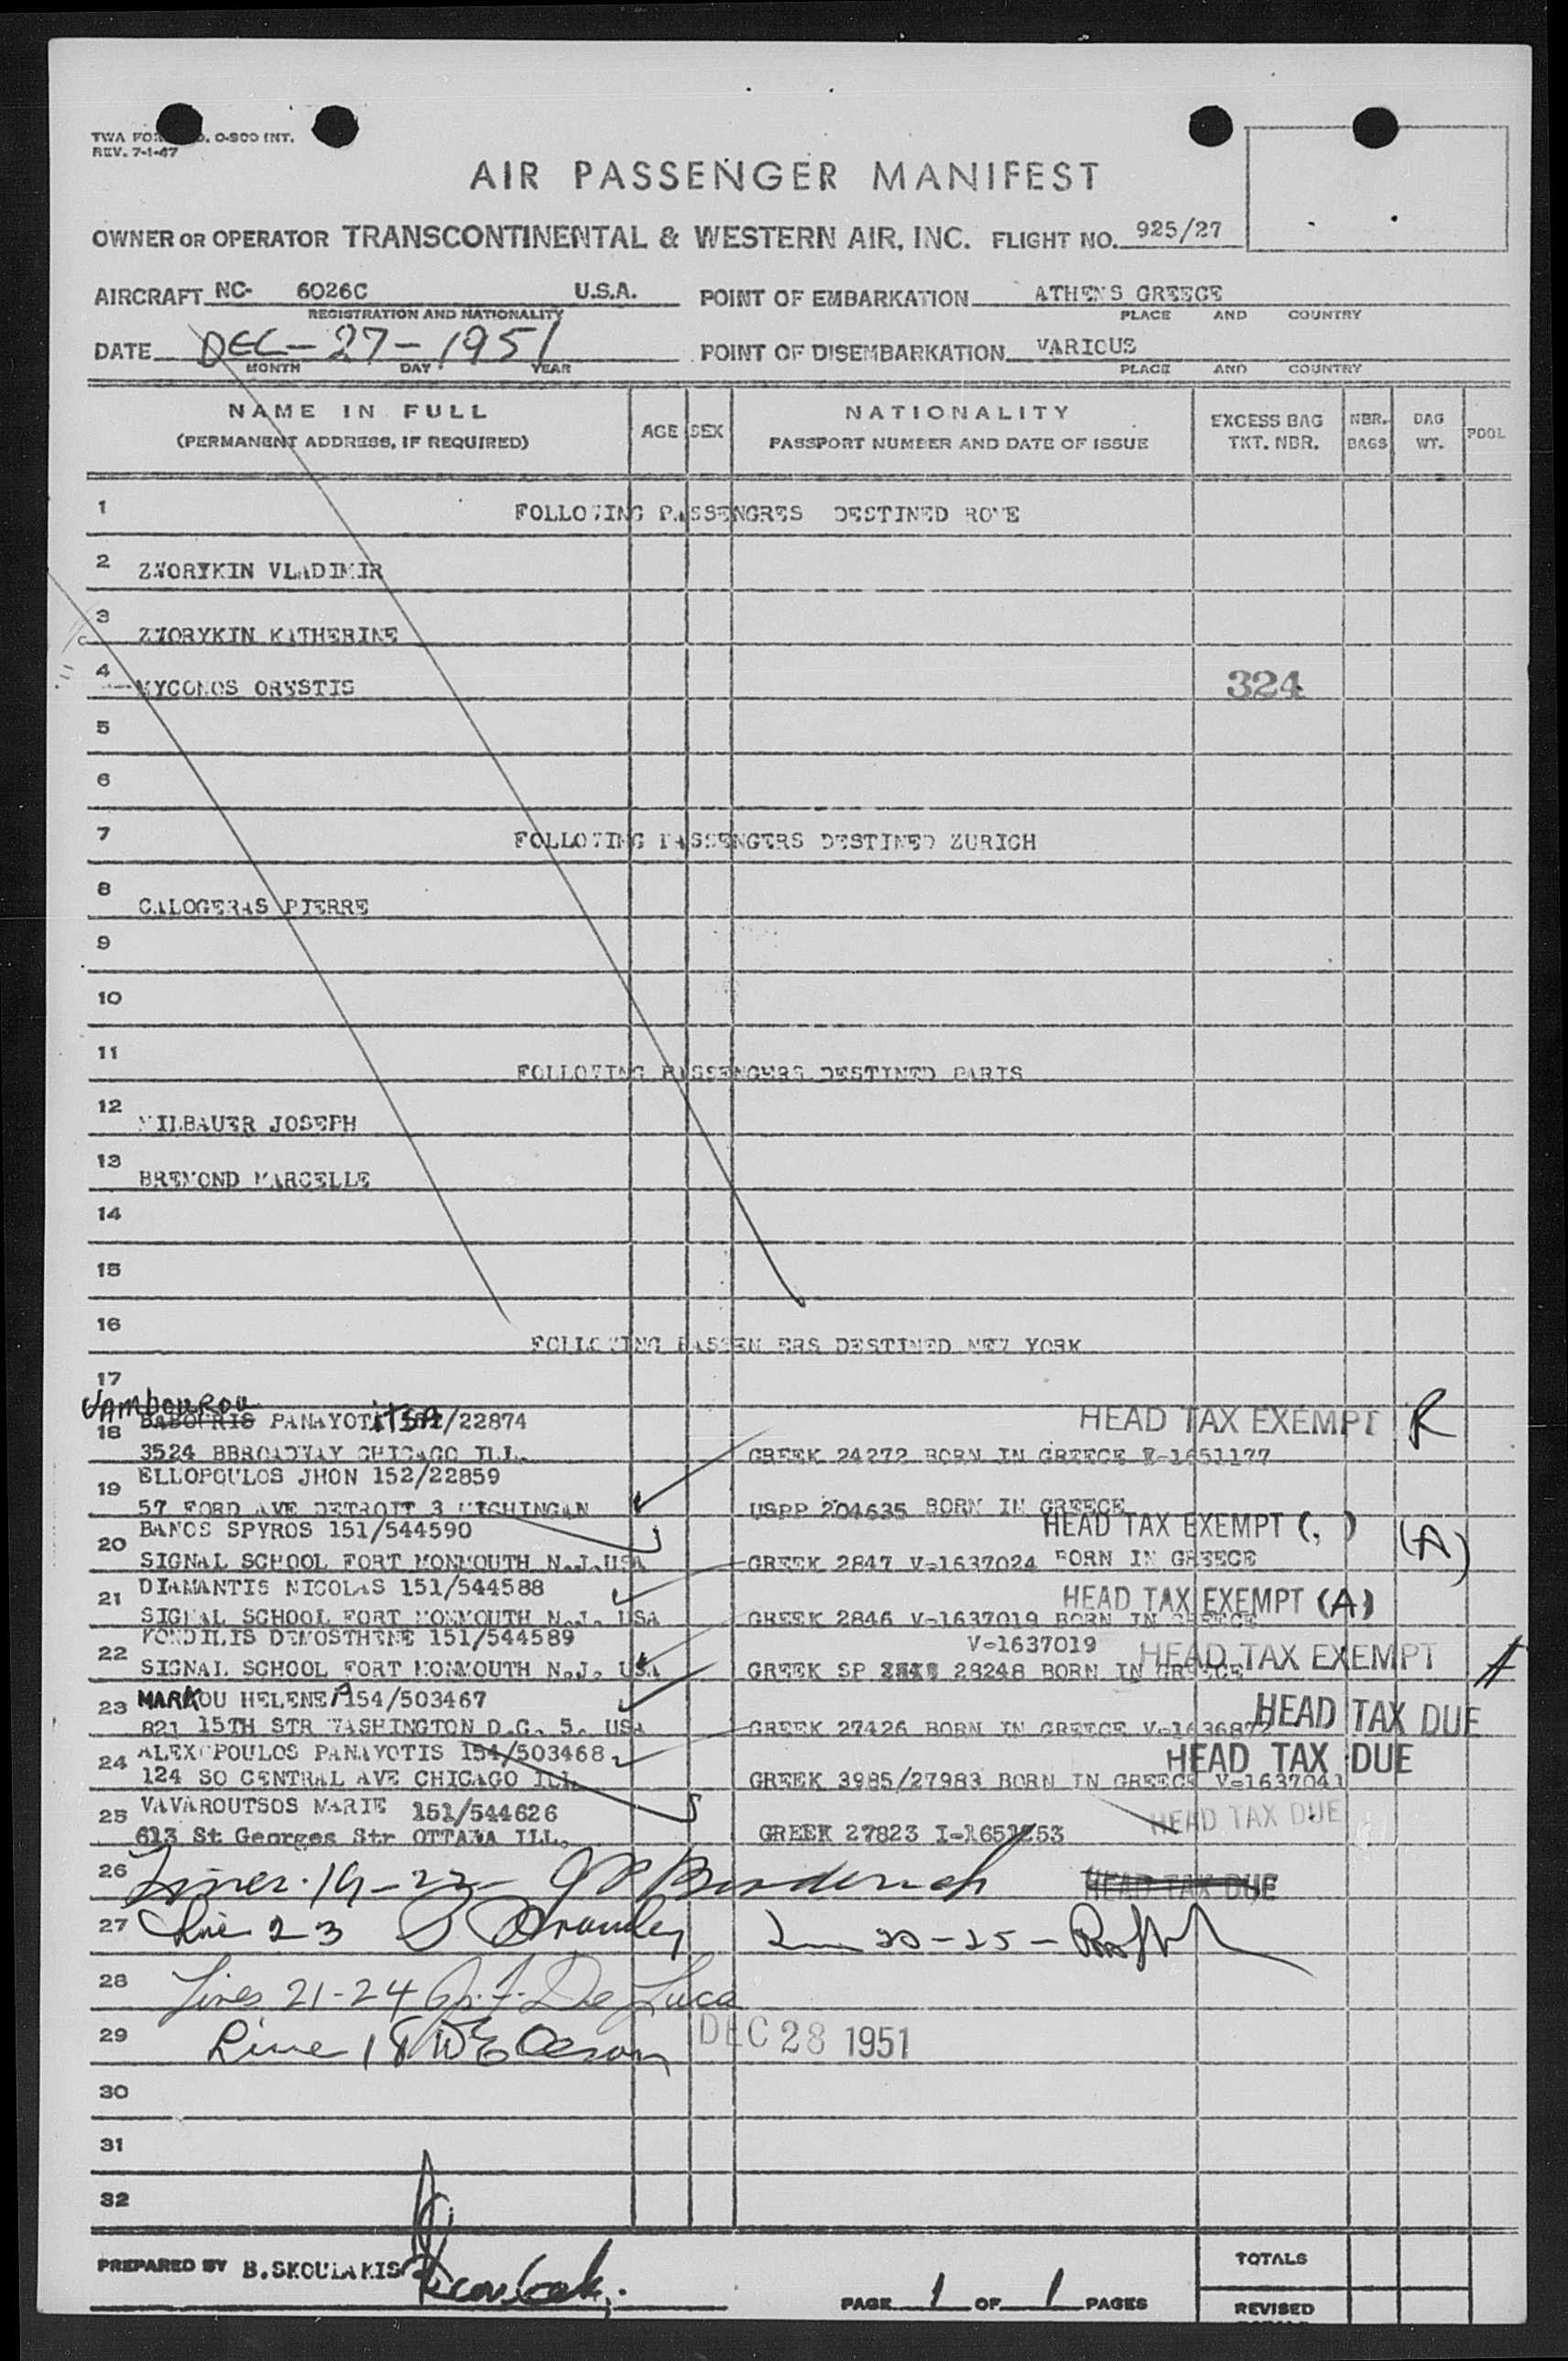 TWA FO O-800 INT.
REV. 7-1-47
AIR PASSENGER MANIFEST
OWNER OR OPERATOR TRANSCONTINENTAL & WESTERN AIR, INC. FLIGHT NO. 925/27
AIRCRAFT NC- 6026C U.S.A. POINT OF EMBARKATION ATHENS GREECE
REGISTRATION AND NATIONALITY PLACE AND COUNTRY
DATE DEC-27-1951 POINT OF DISEMBARKATION VARIOUS
MONTH DAY YEAR PLACE AND COUNTRY
NAME IN FULL
(PERMANENT ADDRESS, IF REQUIRED)
AGE SEX
NATIONALITY
PASSPORT NUMBER AND DATE OF ISSUE
EXCESS BAG
TKT. NBR.
NBR.
BAGS
BAG
WT.
POOL
1 FOLLOWING PASSENGRES DESTINED ROME
2 ZWORYKIN VLADIMIR
3 ZWORYKIN KATHERINE
4 MYCONOS ORESTIS 324
5
6
7 FOLLOWING PASSENGERS DESTINED ZURICH
8 CALOGERAS PIERRE
9
10
11 FOLLOWING PASSENGERS DESTINED PARIS
12 MILBAUER JOSEPH
13 BREMOND MARCELLE
14
15
16 FOLLOWING PASSEN ERS DESTINED NEW YORK
17
JAMBOUROU
18 BABOURIS PANAYOTITSA /22874 HEAD TAX EXEMPT R
3524 BBROADWAY CHICAGO ILL. GREEK 24272 BORN IN GREECE V-1651177
19 ELLOPOULOS JHON 152/22859
57 FORD AVE DETROIT 3 MICHINGAN USPP 204635 BORN IN GREECE
20 BANOS SPYROS 151/544590 HEAD TAX EXEMPT ( ) (A)
SIGNAL SCHOOL FORT MONMOUTH N.J.USA GREEK 2847 V-1637024 BORN IN GREECE
21 DIAMANTIS NICOLAS 151/544588 HEAD TAX EXEMPT (A)
SIGNAL SCHOOL FORT MONMOUTH N.J. USA GREEK 2846 V-1637019 BORN IN GREECE
22 KONDILIS DEMOSTHENE 151/544589 V-1637019 HEAD TAX EXEMPT A
SIGNAL SCHOOL FORT MONMOUTH N.J. USA GREEK SP 28248 BORN IN GREECE
23 MARKOU HELENE A 154/503467 HEAD TAX DUE
821 15TH STR WASHINGTON D.C. 5. USA GREEK 27426 BORN IN GREECE V-1636872
24 ALEXOPOULOS PANAYOTIS 154/503468 HEAD TAX DUE
124 SO CENTRAL AVE CHICAGO ILL. GREEK 3985/27983 BORN IN GREECE V-1637041
25 VAVAROUTSOS MARIE 151/544626 HEAD TAX DUE
613 St Georges Str OTTAWA ILL. GREEK 27823 I-1651253
26 Lines 19-22- HEAD TAX DUE
27 Line 23 20-25-
28 Lines 21-24 De Luca
29 Line 18 W E Olson DEC 28 1951
30
31
32
PREPARED BY B.SKOULAKIS
PAGE 1 OF 1 PAGES
TOTALS
REVISED